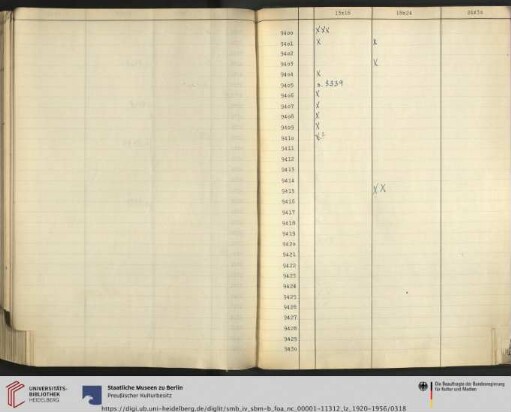 13x18 18x24
9400 XXX
9401 X X
9402
9403 X
9404 X
9405 s. 3339
9406 X
9407 X
9408 X
9409 X
9410 X
9411
9412
9413
9414
9415 X X
9416
9417
9418
9419
9420
9421
9422
9423
9424
9425
9426
9427
9428
9429
9430
UNIVERSITÄTS-
BIBLIOTHEK
HEIDELBERG
Staatliche Museen zu Berlin
Preußischer Kulturbesitz
Die Beauftragte der Bundesregierung
für Kultur und Medien
https://digi.ub.uni-heidelberg.de/diglit/smb_iv_sbm-b_foa_nc_00001-11312_lz_1920-1956/0318